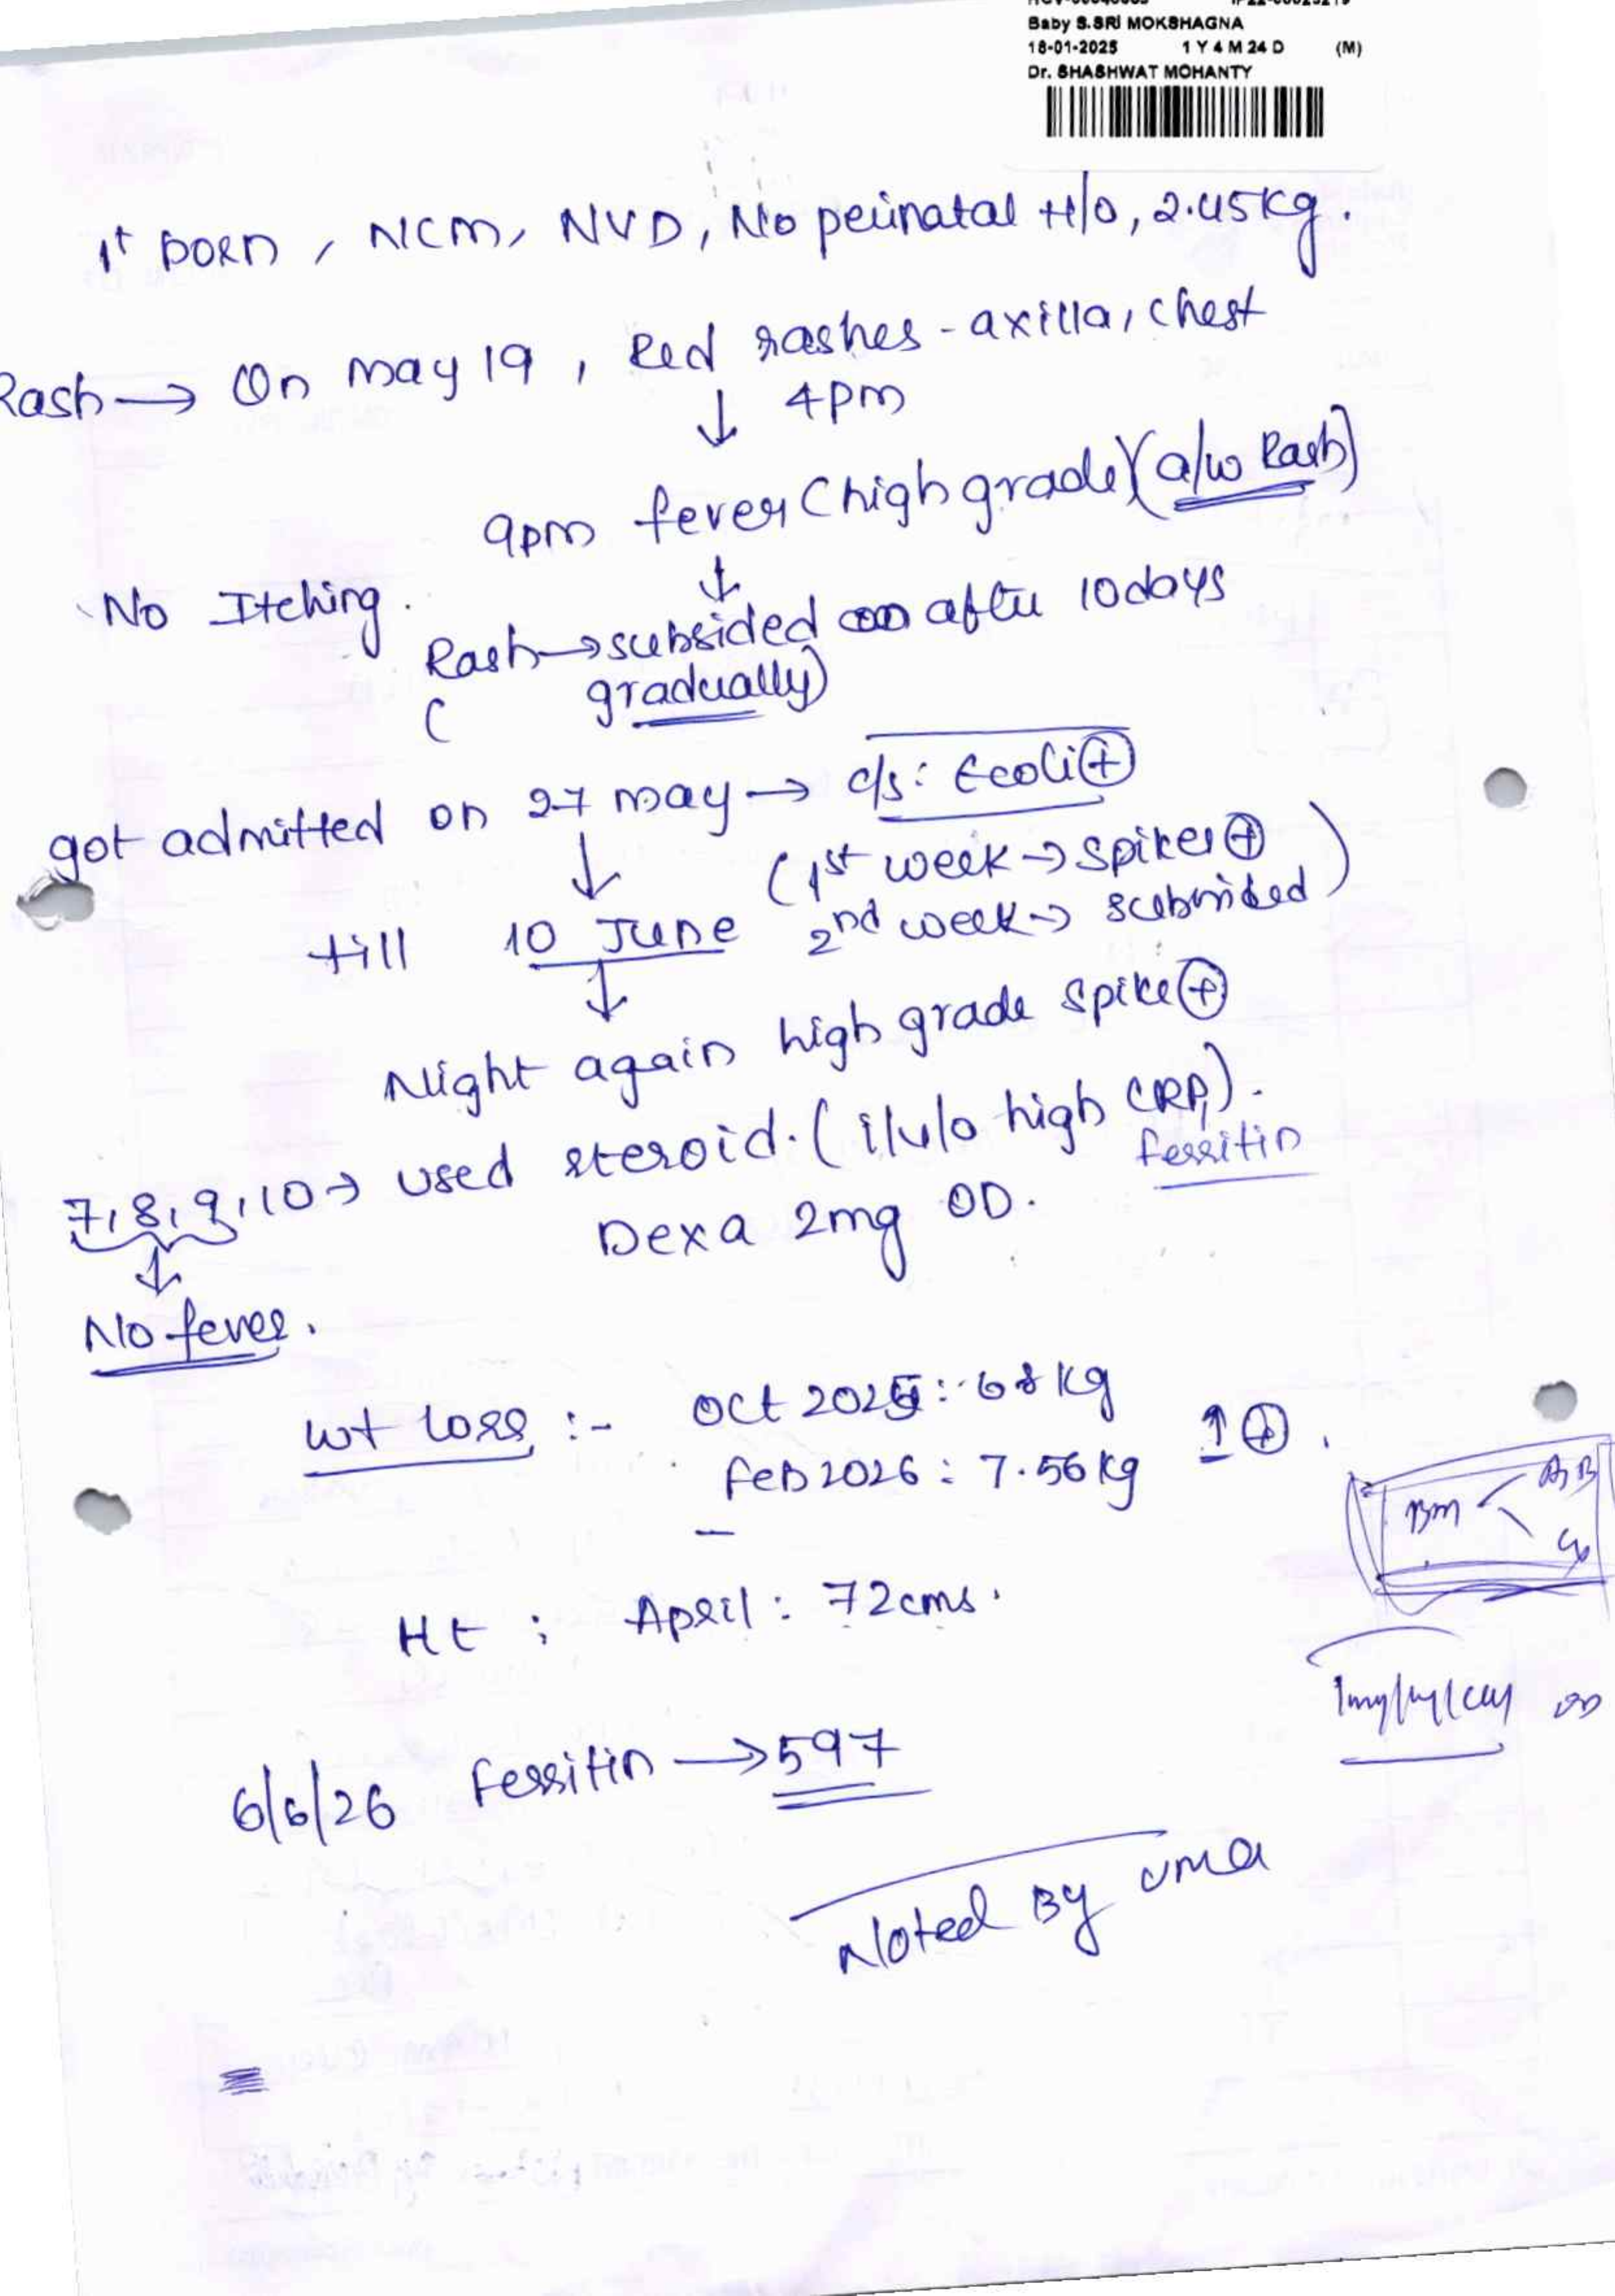 Baby S.SRI MOKSHAGNA
18-01-2025 1 Y 4 M 24 D (M)
Dr. SHASHWAT MOHANTY
1st born, NCM, NVD, No perinatal H/o, 2.45kg.
Rash → On may 19, Red rashes - axilla, chest
↓ 4pm
9pm fever (high grade) (a/w Rash)
↓
No Itching.
Rash → subsided on after 10 days
( gradually)
got admitted on 27 may → c/s: Ecoli ⊕
↓ (1st week → spikes ⊕
till 10 June 2nd week → subsided)
↓
Night again high grade spike ⊕
7, 8, 9, 10 → used steroid. (i/v/o high CRP,).
ferritin
Dexa 2mg OD.
↓
No fever.
wt loss :- Oct 2025 : 6.8 kg
Feb 2026 : 7.56 kg ↑ ⊕.
BM
Ht : April : 72 cms.
1mg/kg/day
6/6/26 Ferritin → 597
Noted By Uma